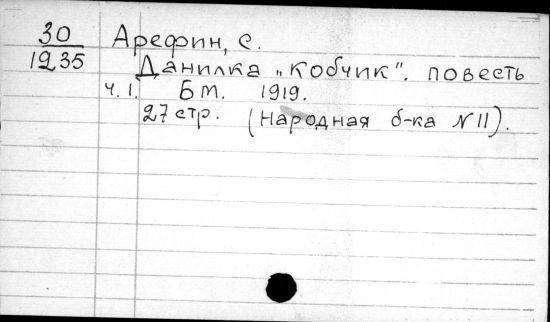 30
1235
Арефин, С.
Данилка „Кобчик". повесть
ч. I. Б м. 1919.
27 стр. (Народная б-ка № 11).